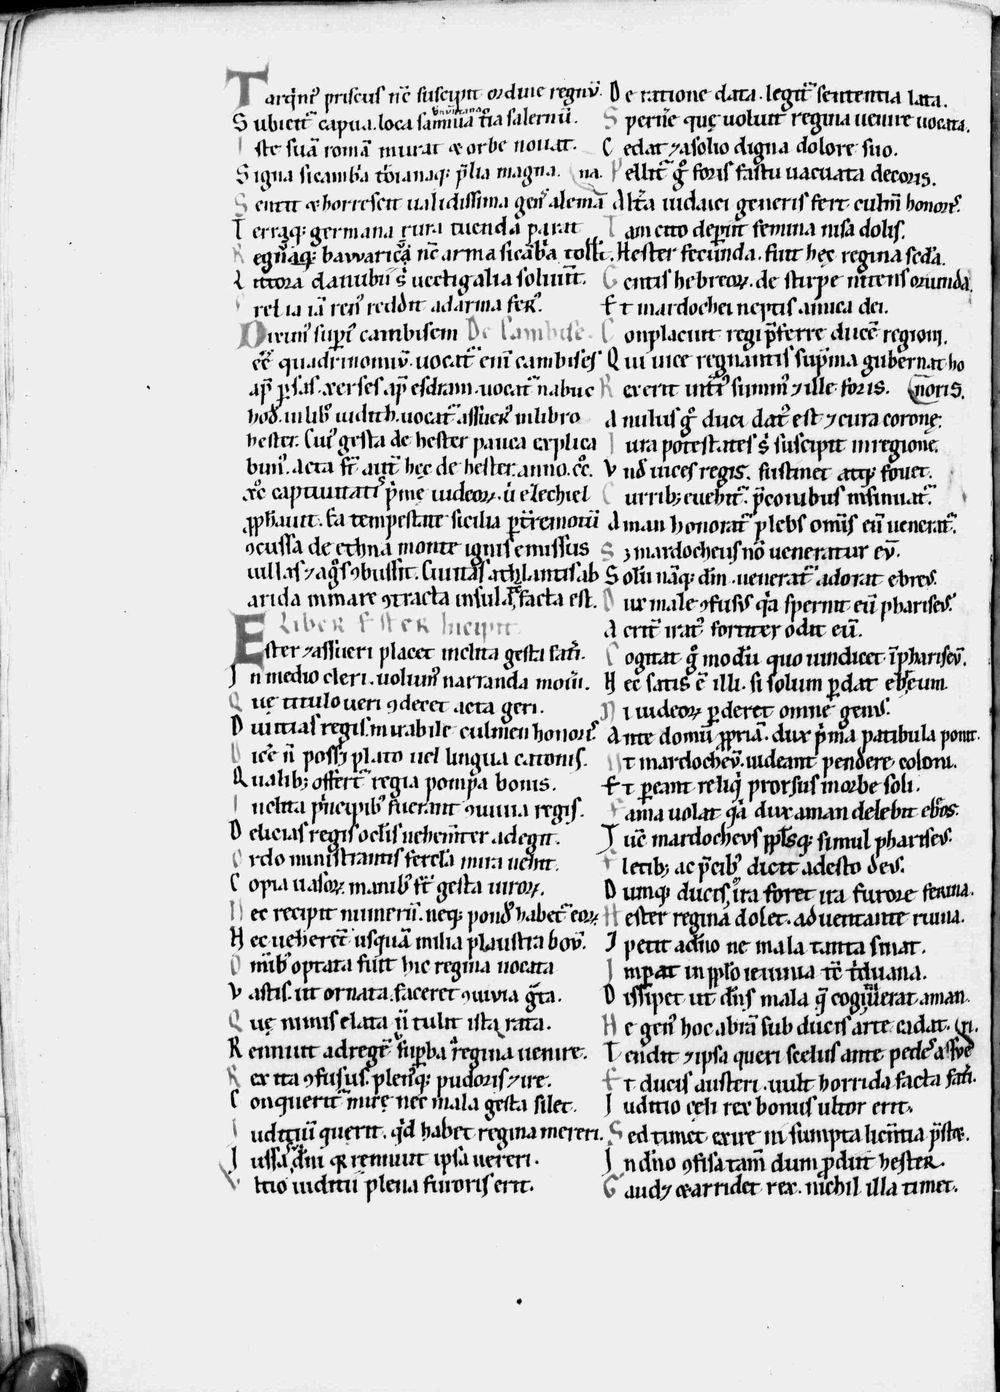 Tarq̇ni᷒ priscus nc̄ suscipit ordine regnū.
Subicit᷒ capua. loca samnia t̄ra salernū.
Iste suā romā murat ⁊ orbe nouat.
Signa sicamb̄a t̄bianaq; p̄lia magna.
Sentit ⁊ horrescit ualidissima gens alemāna.
Terraq; germana rura tuenda parat
Regnaq; bawarica nc̄ arma sicāb̄a tollit.
Littora danubii s̄ uectigalia soluunt.
rel ia iā ren᷒ reddit ad arma fer᷒.
Diximꝰ supi᷒ cambisem De Cambise.
eē quadrinomiū. uocat᷒ eni᷒ cambises
ap̄ p̄sas. xerses ap̄ esdram. uocat᷒ nabuc
hod᷒. in lib᷒ iudith. uocat᷒ assuer᷒ in libro
hester. Cui᷒ gesta de hester pauca explica
bim᷒. Acta st̄ aut̄ hęc de hester. anno. cc̄.
xc̄ captiuitatis p̄mę iudeoꝝ. ū ezechiel
ꝓphauit. Ea tempestate sicilia p̄ t̄remotū
ꝯcussa de ethna monte ignis emissus
uillas ⁊ ag̊s ꝯbussit. Ciuitas athlantis ab
arida in mare ꝯtracta insula facta est.
Liber Ester Incipit.
Ester ⁊ assueri placet inclita gesta fateri.
In medio cleri. uolumꝰ narranda moueri.
Quę titulo ueri ꝯdecet acta geri.
Diuitias regis. mirabile culmen honoris
Dicē n̄ possꝫ plato uel lingua catonis.
Qualibꝫ offert᷒ regia pompa bonis.
Inclita p̄ncipibꝰ fuerant ꝯuiuia regis.
Delicias regis oclīs uehem̄ter adegit.
Ordo ministrantis fercl̄a mira uehit.
Copia uasoꝝ. manibꝰ st̄ gesta uiroꝝ.
Nec recipit numerū. neq; pond᷒ habet᷒ eoꝝ
Hec ueherent usquā milia plaustra boū.
Om̄ibꝰ optata fuit hic regina uocata
Vastis. ut ornata. faceret ꝯuiuia g̃ta.
Quę nimis elata n̄ tulit ista rata.
Rennuit ad regē supba regina uenire.
Rex ita ꝯfusus. plenꝰq; pudoris ⁊ irę.
Conquerit᷒ mirę nec mala gesta silet.
Iuditiū querit. qd̄ habet regina mereri.
Iussa dn̄i q̄ rennuit ipsa uereri.
Vltio iuditii plena furoris erit.
De ratione data. legit᷒ sententia lata.
Spernē quę uoluit regina uenire uocata.
Cedat ⁊ a solio digna dolore suo.
Pellit᷒ g̊ foris fastu uacuata decoris.
Alt̄a iudaici generis fert culm̄ honoris.
Tam cito deperiit femina nisa dolis.
Hester fecunda. fuit hęc regina secd̄a.
Gentis hebreoꝝ. de stirpe nitens oriunda.
Et mardochei neptis amica dei.
Conplacuit regi p̄ferre ducē regioni.
Qui uice regnantis sup̄ma gubernat honoris.
Rexerit int᷒ summꝰ ⁊ ille foris.
Anulus g̊ duci dat᷒ est ⁊ cura coronę.
Iura potestates s̄ suscipit in regione.
Vnd̄ uices regis. sustinet atqꝫ fouet.
Curribꝫ euehit᷒. p̄conibus insinuat᷒.
Aman honorat᷒ plebs omīs eū uenerat᷒.
Sꝫ mardocheus nō ueneratur eū.
Solū nāq; dn̄m. uenerat᷒ adorat ebreꝰ.
Dux male ꝯfusꝰ q̇a spernit eū phariseꝰ.
Acrit̄ iratꝰ fortiter odit eū.
Cogitat g̊ modū quo uindicet īphariseū.
Nec satis ē illi. si solum pdat eb̄eum.
Ni iudeoꝝ pderet omne genꝰ.
Ante domū ꝓpriā. dux p̄ma patibula ponit.
Vt mardocheū. uideant pendere coloni.
Et pereant reliq̇ prorsus in orbe soli.
Fama uolat q̇a dux aman delebit eb̄os.
Tūc mardocheus ppl̄sq; simul phariseꝰ.
Fletibꝫ ac p̄cibꝰ dicit adesto deꝰ.
Dumq; ducis ira foret ita furore ferina.
Hester regina dolet. aduentante ruina.
Ipetit a dn̄o ne mala tanta sinat.
Imperat in pplo ieiunia t̄ t̄duana.
Dissipet ut dn̄s mala q̄ cogitauerat aman.
Ne gens hoc abrā sub ducis arte cadat.
Tendit ⁊ ipsa queri scelus ante pedes assueri.
Et ducis austeri. uult horrida facta fateri.
Iuditio cęli rex bonus ultor erit.
Sed timet exire ni sumpta licentia p̄stet.
In dn̄o ꝯfisa tam̄ dum prodiit hester.
Gaudꝫ ⁊ arridet rex. nichil illa timet.